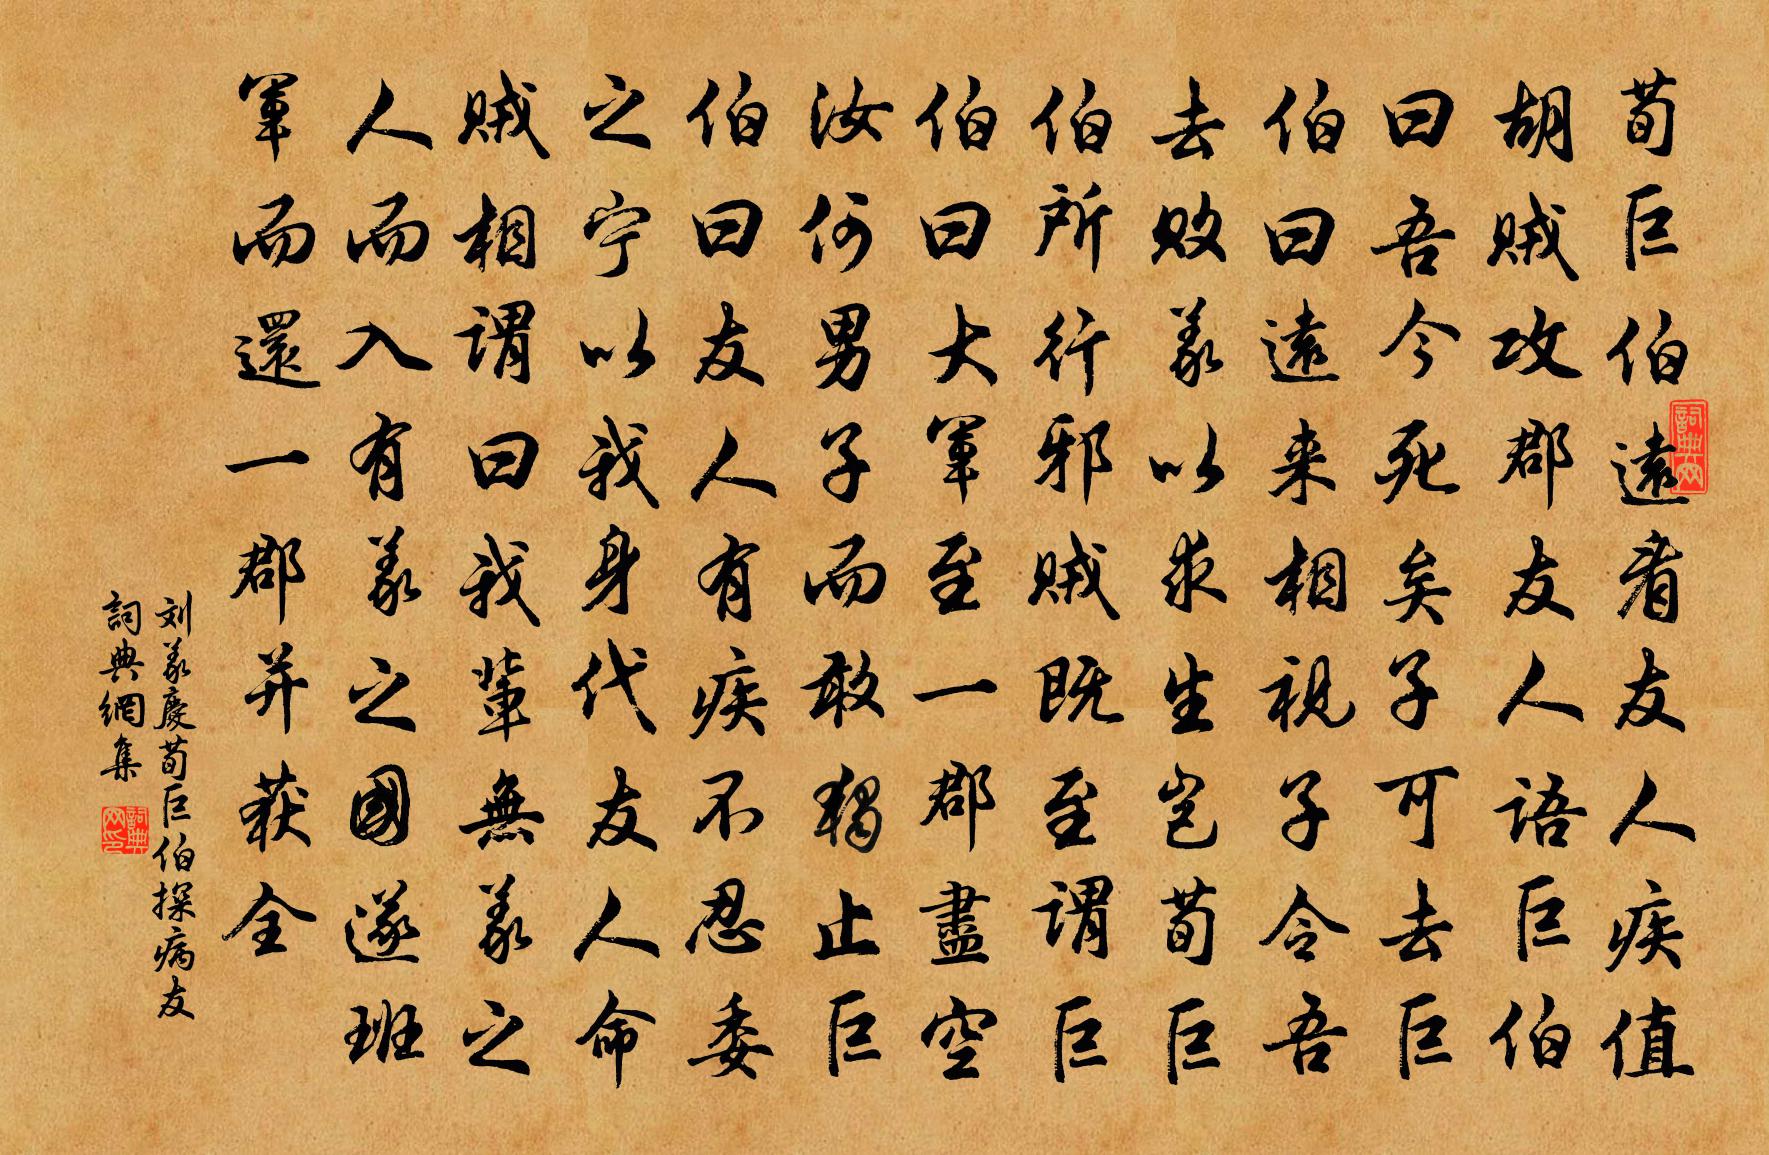 荀巨伯遠看友人疾值
胡賊攻郡友人語巨伯
曰吾今死矣子可去巨
伯曰遠来相視子令吾
去敗義以求生岂荀巨
伯所行邪賊既至謂巨
伯曰大軍至一郡盡空
汝何男子而敢獨止巨
伯曰友人有疾不忍委
之宁以我身代友人命
賊相謂曰我輩無義之
人而入有義之國遂班
軍而還一郡并获全
刘義慶荀巨伯探病友
詞典網集
詞典网
詞典网印